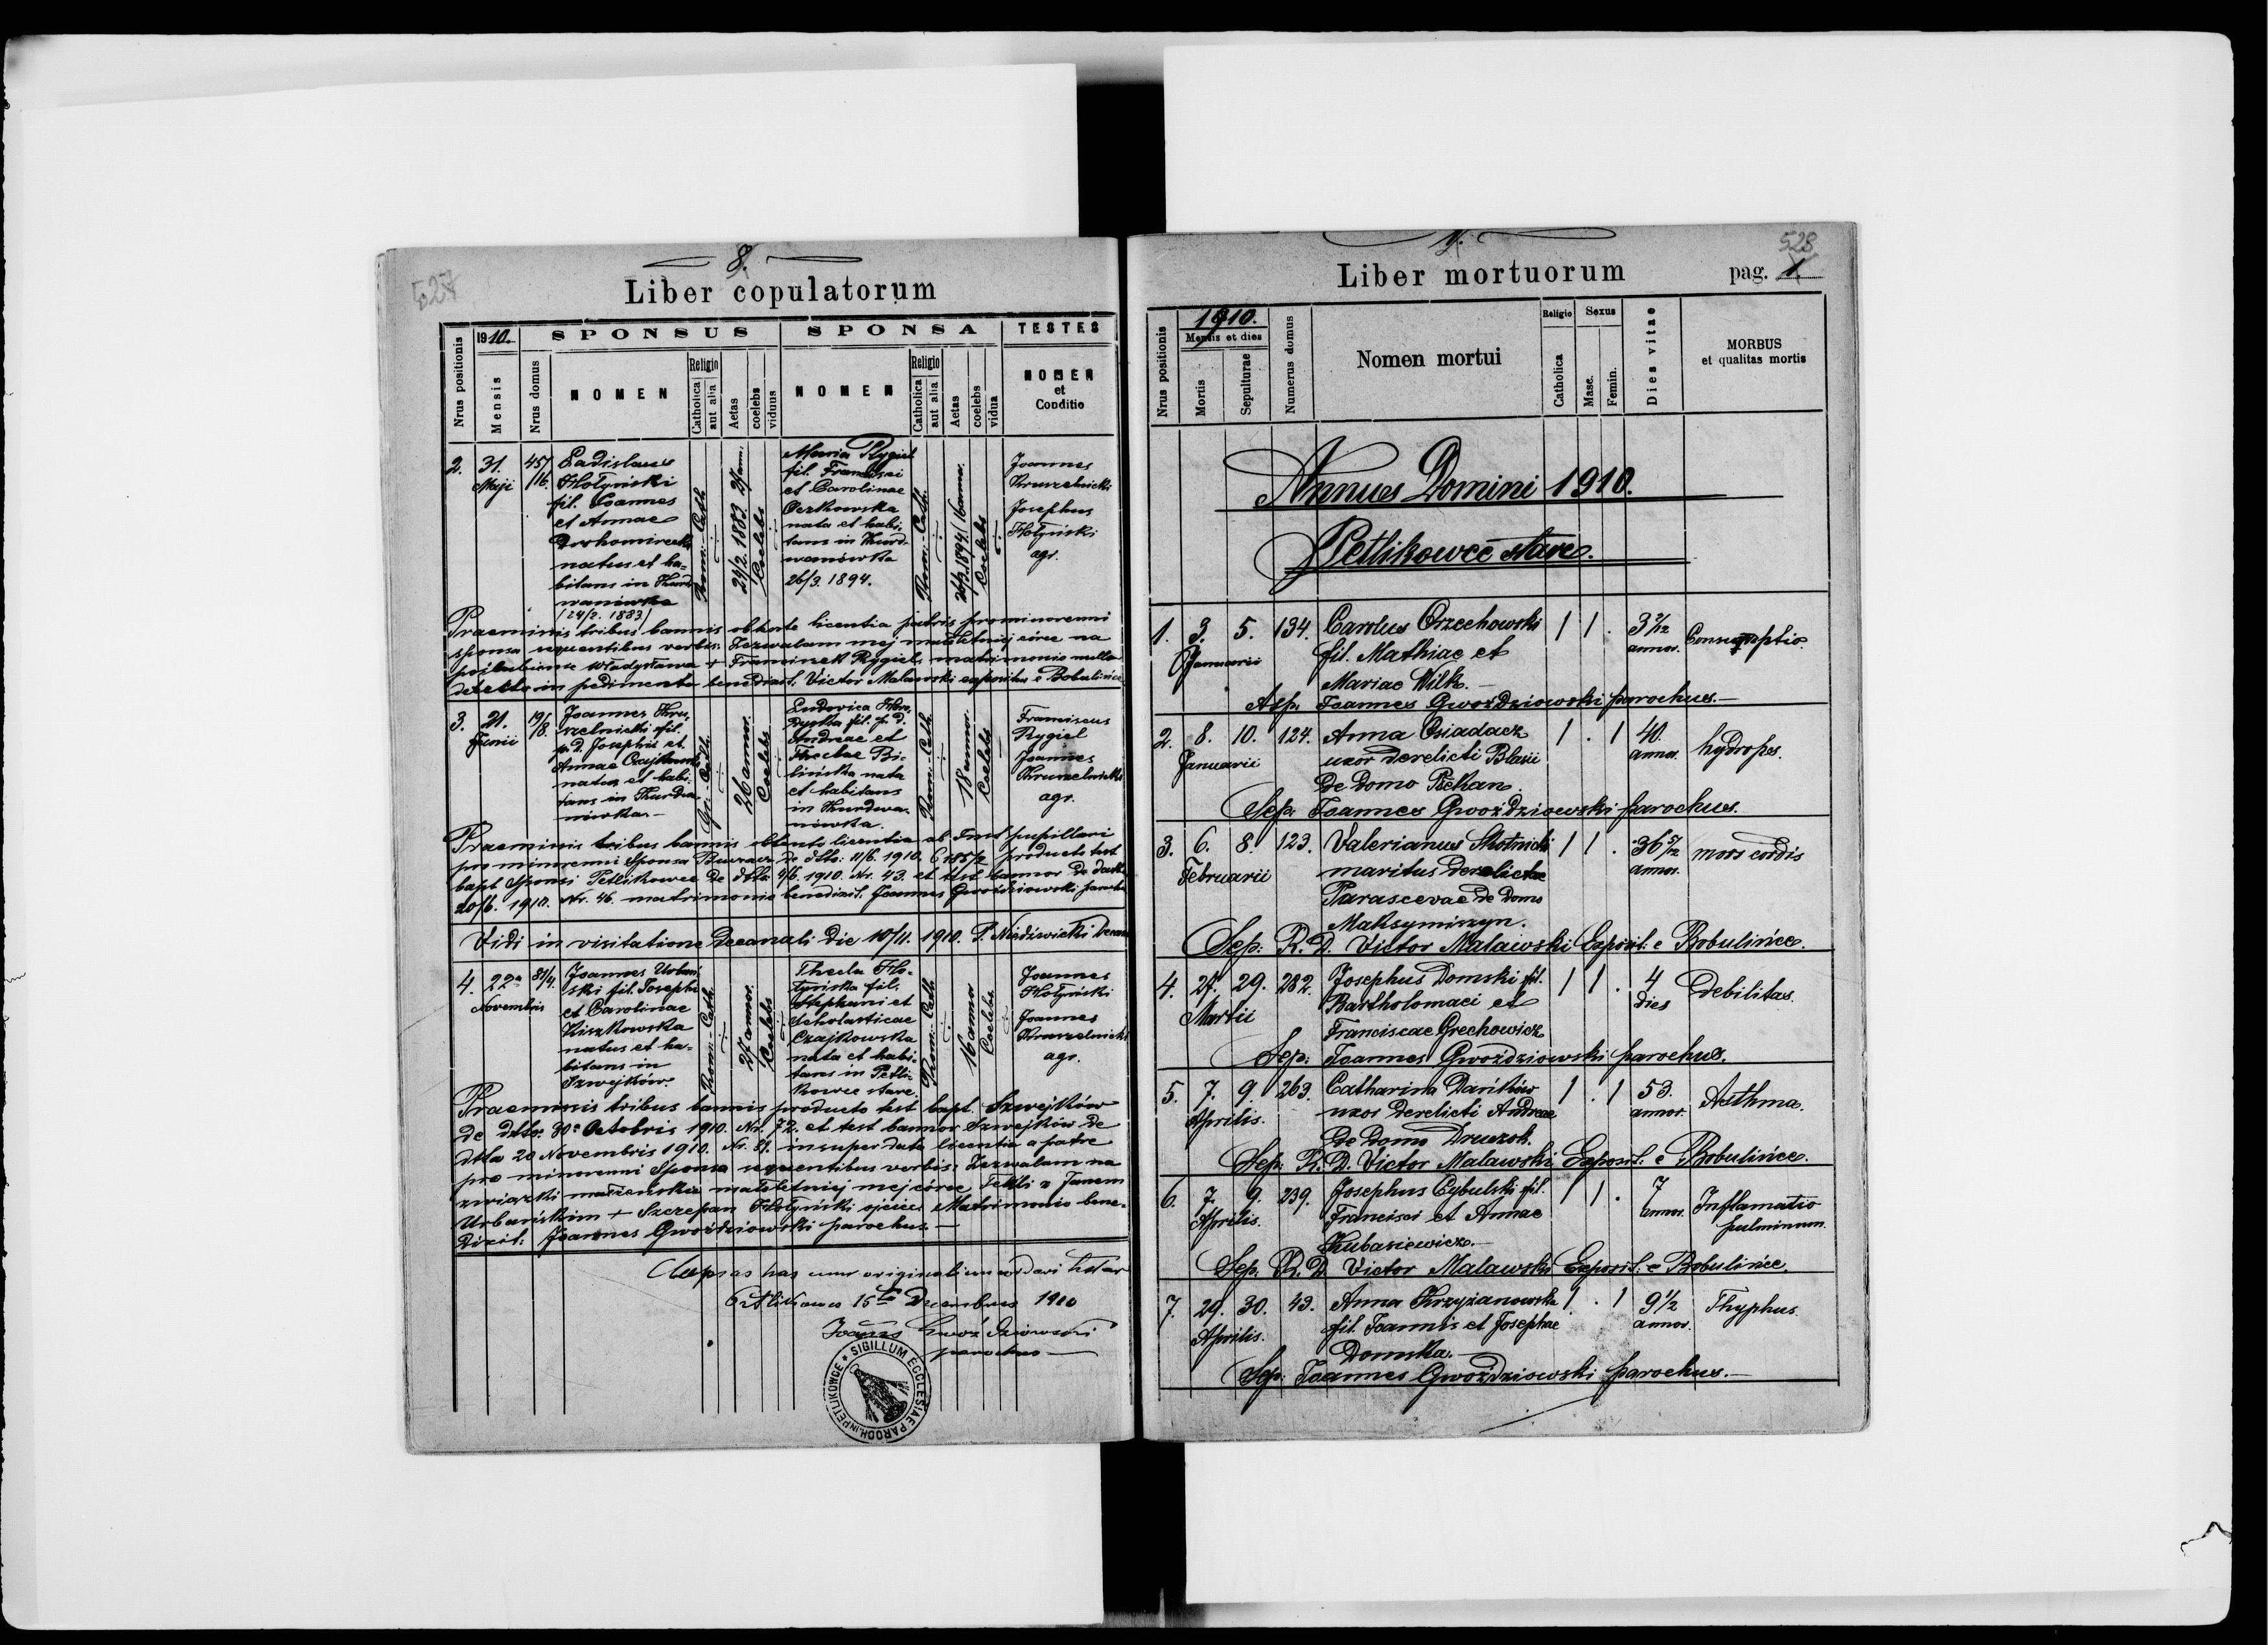 527
8.
Liber copulatorum
Nrus positionis
1910.
Mensis
Nrus domus
SPONSUS
NOMEN
Religio
Catholica
aut alia
Aetas
coelebs
viduus
SPONSA
NOMEN
Religio
Catholica
aut alia
Aetas
coelebs
vidua
TESTES
NOMEN
et
Conditio
2.
31.
Maji
457/
116.
Ladislaus
Hołyński
fil. Joannes
et Annae
Drohomirecka
natus et ha=
bitans in Kurd
waniwka
/24/2. 1883/
Rom: Cath
24/2. 1883. 27 ann.
Coelebs
Maria Rygiel
fil. Francisci
et Carolinae
Oczkowska
nata et habi,
tans in Kurd-
waniwka
26/3. 1894.
Rom: Cath.
26/3. 1894/ 16 anno.
Coelebs
Joannes
Kruszelnicki
Josephus
Hołyński
agr.
Praemissis tribus bannis obtente licentia patris pro minorenni
sponsa sequentibus verbis: Zezwalam mej małoletniej córce na
poślubienie Władysława + Franciszek Rygiel, matrimonio nullo
detecto in pedimento benedixit. Victor Malawski expositus e Bobulińce
3.
21.
Junii
19/
8.
Joannes Kru,
szelnicki fil.
p. d. Josephi et
Annae Czajkowska
natus et habi,
tans in Kurdwa
niwka.—
Gr: Cath.
26 annor.
Coelebs
Ludovica
fil. p. d.
Andreae et
Theclae Bi-
lińska nata
et habitans
in Kurdwa-
niwka.
Rom: Cath.
18 annor.
Coelebs
Franciscus
Rygiel
Joannes
Kruszelnicki
agr.
Praemissis tribus bannis obtento licentia ab Inst pupillari
pro minorenni Sponsa Buczacz de dtto. 11/6. 1910. producto test
bapt Sponsi Petlikowce de dtto 4/6. 1910. Nr. 43. et test bannor de dato
20/6. 1910. Nr. 46. matrimonio benedixit. Joannes Gwoździowski parochus
Vidi in visitatione Decanali die 10/11. 1910. Niedźwiecki
4.
22a
Novembris
81/
4.
Joannes Urbań,
ski fil. Josephi
et Carolinae
Kiszkowska
natus et ha-
bitans in
Szwejków.
Rom: Cath.
27 annor.
Coelebs
Thecla Ho-
łyńska fil.
Stephani et
Scholasticae
Czajkowska
nata et habi-
tans in Petli-
kowce stare.
Rom: Cath.
16 annor
Coelebs.
Joannes
Hołyński
Joannes
Kruszelnicki
agr.
Praemissis tribus bannis producto test bapt. Szwejków
de dtto. 30a Octobris 1910. Nr. 72. et test bannor Szwejków de
dtto 20 Novembris 1910. Nr. 81. insuper data licentia a patre
pro minorenni Sponsa sequentibus verbis: Zezwalam na
związki małżeńskie małoletniej mej córce Tekli z Janem
Urbańskim + Szczepan Hołyński ojciec. Matrimonio bene-
dixit: Joannes Gwoździowski parochus.—
has cum originali
Petlikowce 15ta Decembris 1910
Joannes Gwoździowski
parochus
SIGILLUM ECCLESIAE PAROCH. IN PETLIKOWCE
528
Liber mortuorum
pag. 1.
Nrus positionis
1910.
Mensis et dies
Mortis
Sepulturae
Numerus domus
Nomen mortui
Religio
Catholica
Sexus
Masc.
Femin.
Dies vitae
MORBUS
et qualitas mortis
Annus Domini 1910.
Petlikowce stare.
1. 3. 5. 134. Carolus Orzechowski 1 1 . 3 7/12 Consumptio.
Januarii fil. Mathiae et annor.
Mariae Wilk.—
Sep: Joannes Gwoździowski parochus.—
2. 8. 10. 124. Anna Osiadacz 1 . 1 40. hydrops.
Januarii uxor derelicti Blasii annor.
de domo Pickan.
Sep: Joannes Gwoździowski parochus.
3. 6. 8. 123. Valerianus Słotnicki 1 1 . 36 5/12 mors cordis
Februarii maritus derelictae annor.
Parascevae de domo
Maksymiszyn.
Sep: R. D. Victor Malawski Exposit: e Bobulińce.
4. 27. 29. 282. Josephus Domski fil. 1 1 . 4 Debilitas.
Martii Bartholomaei et dies
Franciscae Grechowicz
Sep: Joannes Gwoździowski parochus.
5. 7. 9. 263. Catharina Dańków 1 . 1 53. Asthma.
Aprilis. uxor derelicti Andreae annor.
de domo Druczok.
Sep: R. D. Victor Malawski Exposit: e Bobulińce.
6. 7. 9. 239. Josephus Cybulski fil. 1 1 . 7 Inflamatio
Aprilis. Francisci et Annae annor. pulminum.
Kubasiewicz.—
Sep: R. D. Victor Malawski Exposit: e Bobulińce.
7. 29. 30. 43. Anna Krzyżanowska 1 . 1 9 1/2 Thyphus.
Aprilis. fil. Joannis et Josephae annor.
Domska.—
Sep: Joannes Gwoździowski parochus.—